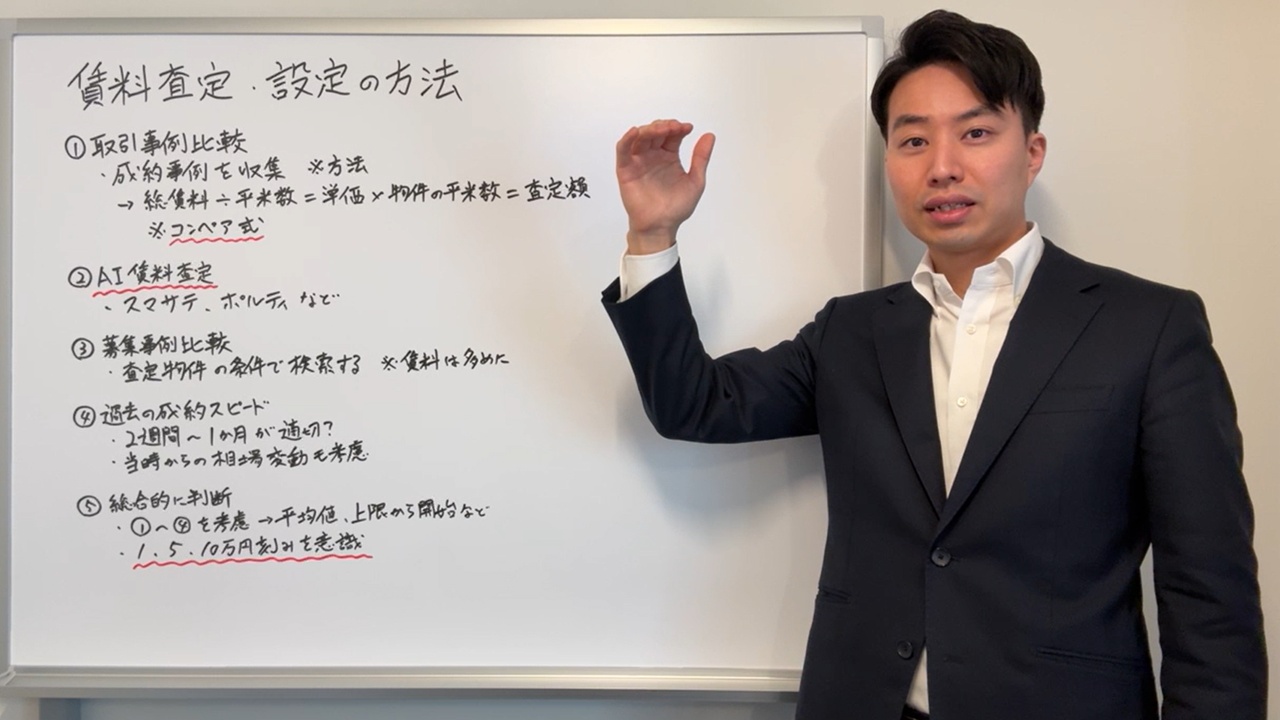 賃料査定・設定の方法
① 取引事例比較
・成約事例を収集 ※方法
→ 総賃料÷平米数=単価×物件の平米数=査定額
※コンペア式
② AI賃料査定
・スマサテ、ポルティなど
③ 募集事例比較
・査定物件の条件で検索する ※賃料は多めに
④ 過去の成約スピード
・2週間〜1か月が適切?
・当時からの相場変動も考慮
⑤ 総合的に判断
・①〜④を考慮→平均値、上限から開始など
・1、5、10万円刻みを意識